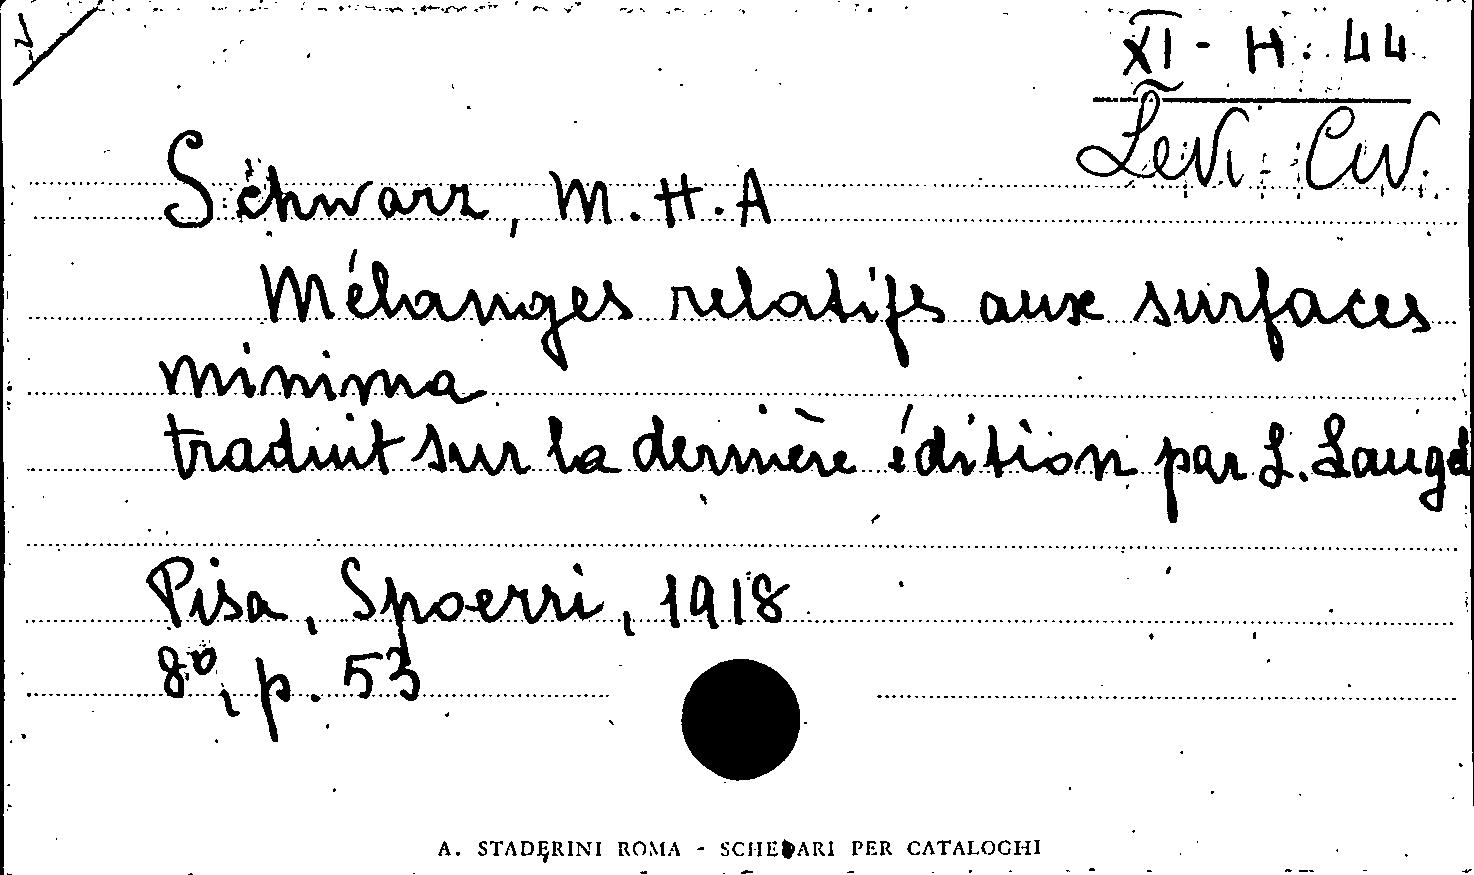 XI - H. 44
Levi-Civ.
Schwarz, M. H. A
Mélanges relatifs aux surfaces
minima
traduit sur la dernière édition par L. Laugel
Pisa, Spoerri, 1918
8º, p. 53
A. STADERINI ROMA - SCHEDARI PER CATALOGHI